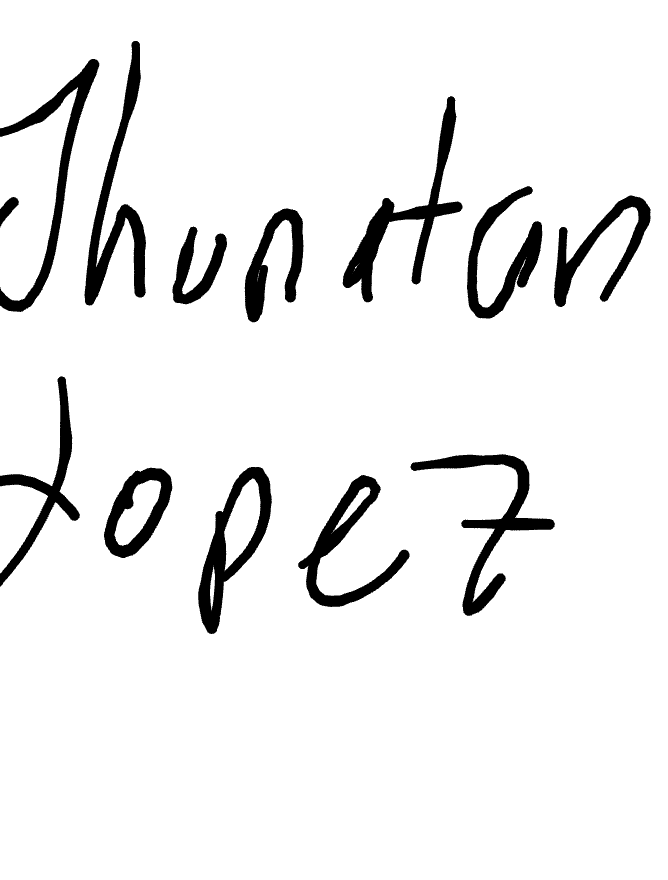 Jhonatan
Lopez